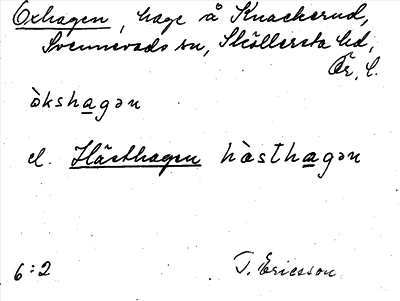 Oxhagen, hage å Knackerud,
Svennevads sn, Sköllersta hd,
Ör. l.
òkshagən
el. Hästhagen hàsthagən
6:2 T. Ericsson